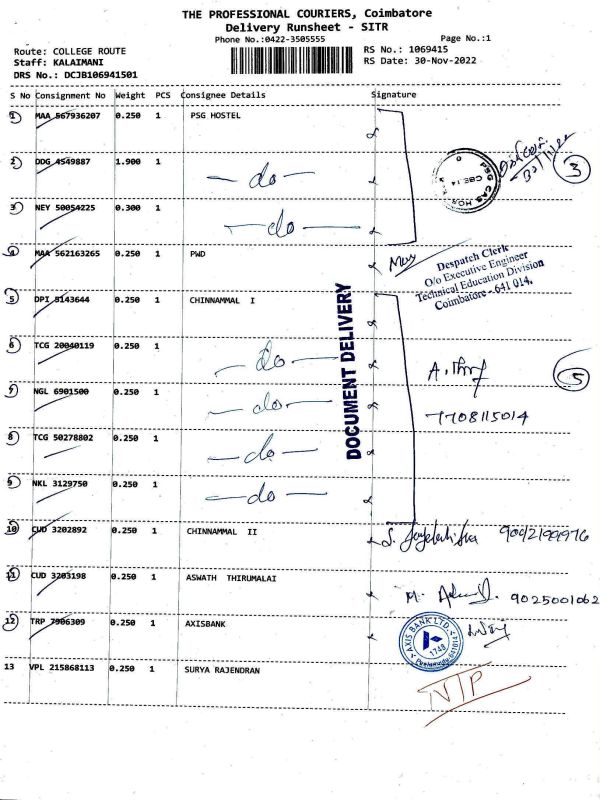 THE PROFESSIONAL COURIERS, Coimbatore
Delivery Runsheet - SITR
Phone No.:0422-3505555 Page No.:1
Route: COLLEGE ROUTE RS No.: 1069415
Staff: KALAIMANI RS Date: 30-Nov-2022
DRS No.: DCJB106941501
S No Consignment No Weight PCS Consignee Details Signature
1 MAA 567936207 0.250 1 PSG HOSTEL
PSG CAS HOS
CBE.14
3
2 DDG 4549887 1.900 1 - do -
3 NEY 50054225 0.300 1 - do -
4 MAA 562163265 0.250 1 PWD
Despatch Clerk
O/o Executive Engineer
Technical Education Division
Coimbatore - 641 014.
5 DPI 5143644 0.250 1 CHINNAMMAL I
DOCUMENT DELIVERY
6 TCG 20040119 0.250 1 - do -
5
7 NGL 6901500 0.250 1 - do -
7708115014
8 TCG 50278802 0.250 1 - do -
9 NKL 3129750 0.250 1 - do -
10 CUD 3202892 0.250 1 CHINNAMMAL II
11 CUD 3203198 0.250 1 ASWATH THIRUMALAI 9025001062
12 TRP 7906309 0.250 1 AXISBANK
AXIS BANK LTD
1748
13 VPL 215868113 0.250 1 SURYA RAJENDRAN
NTP